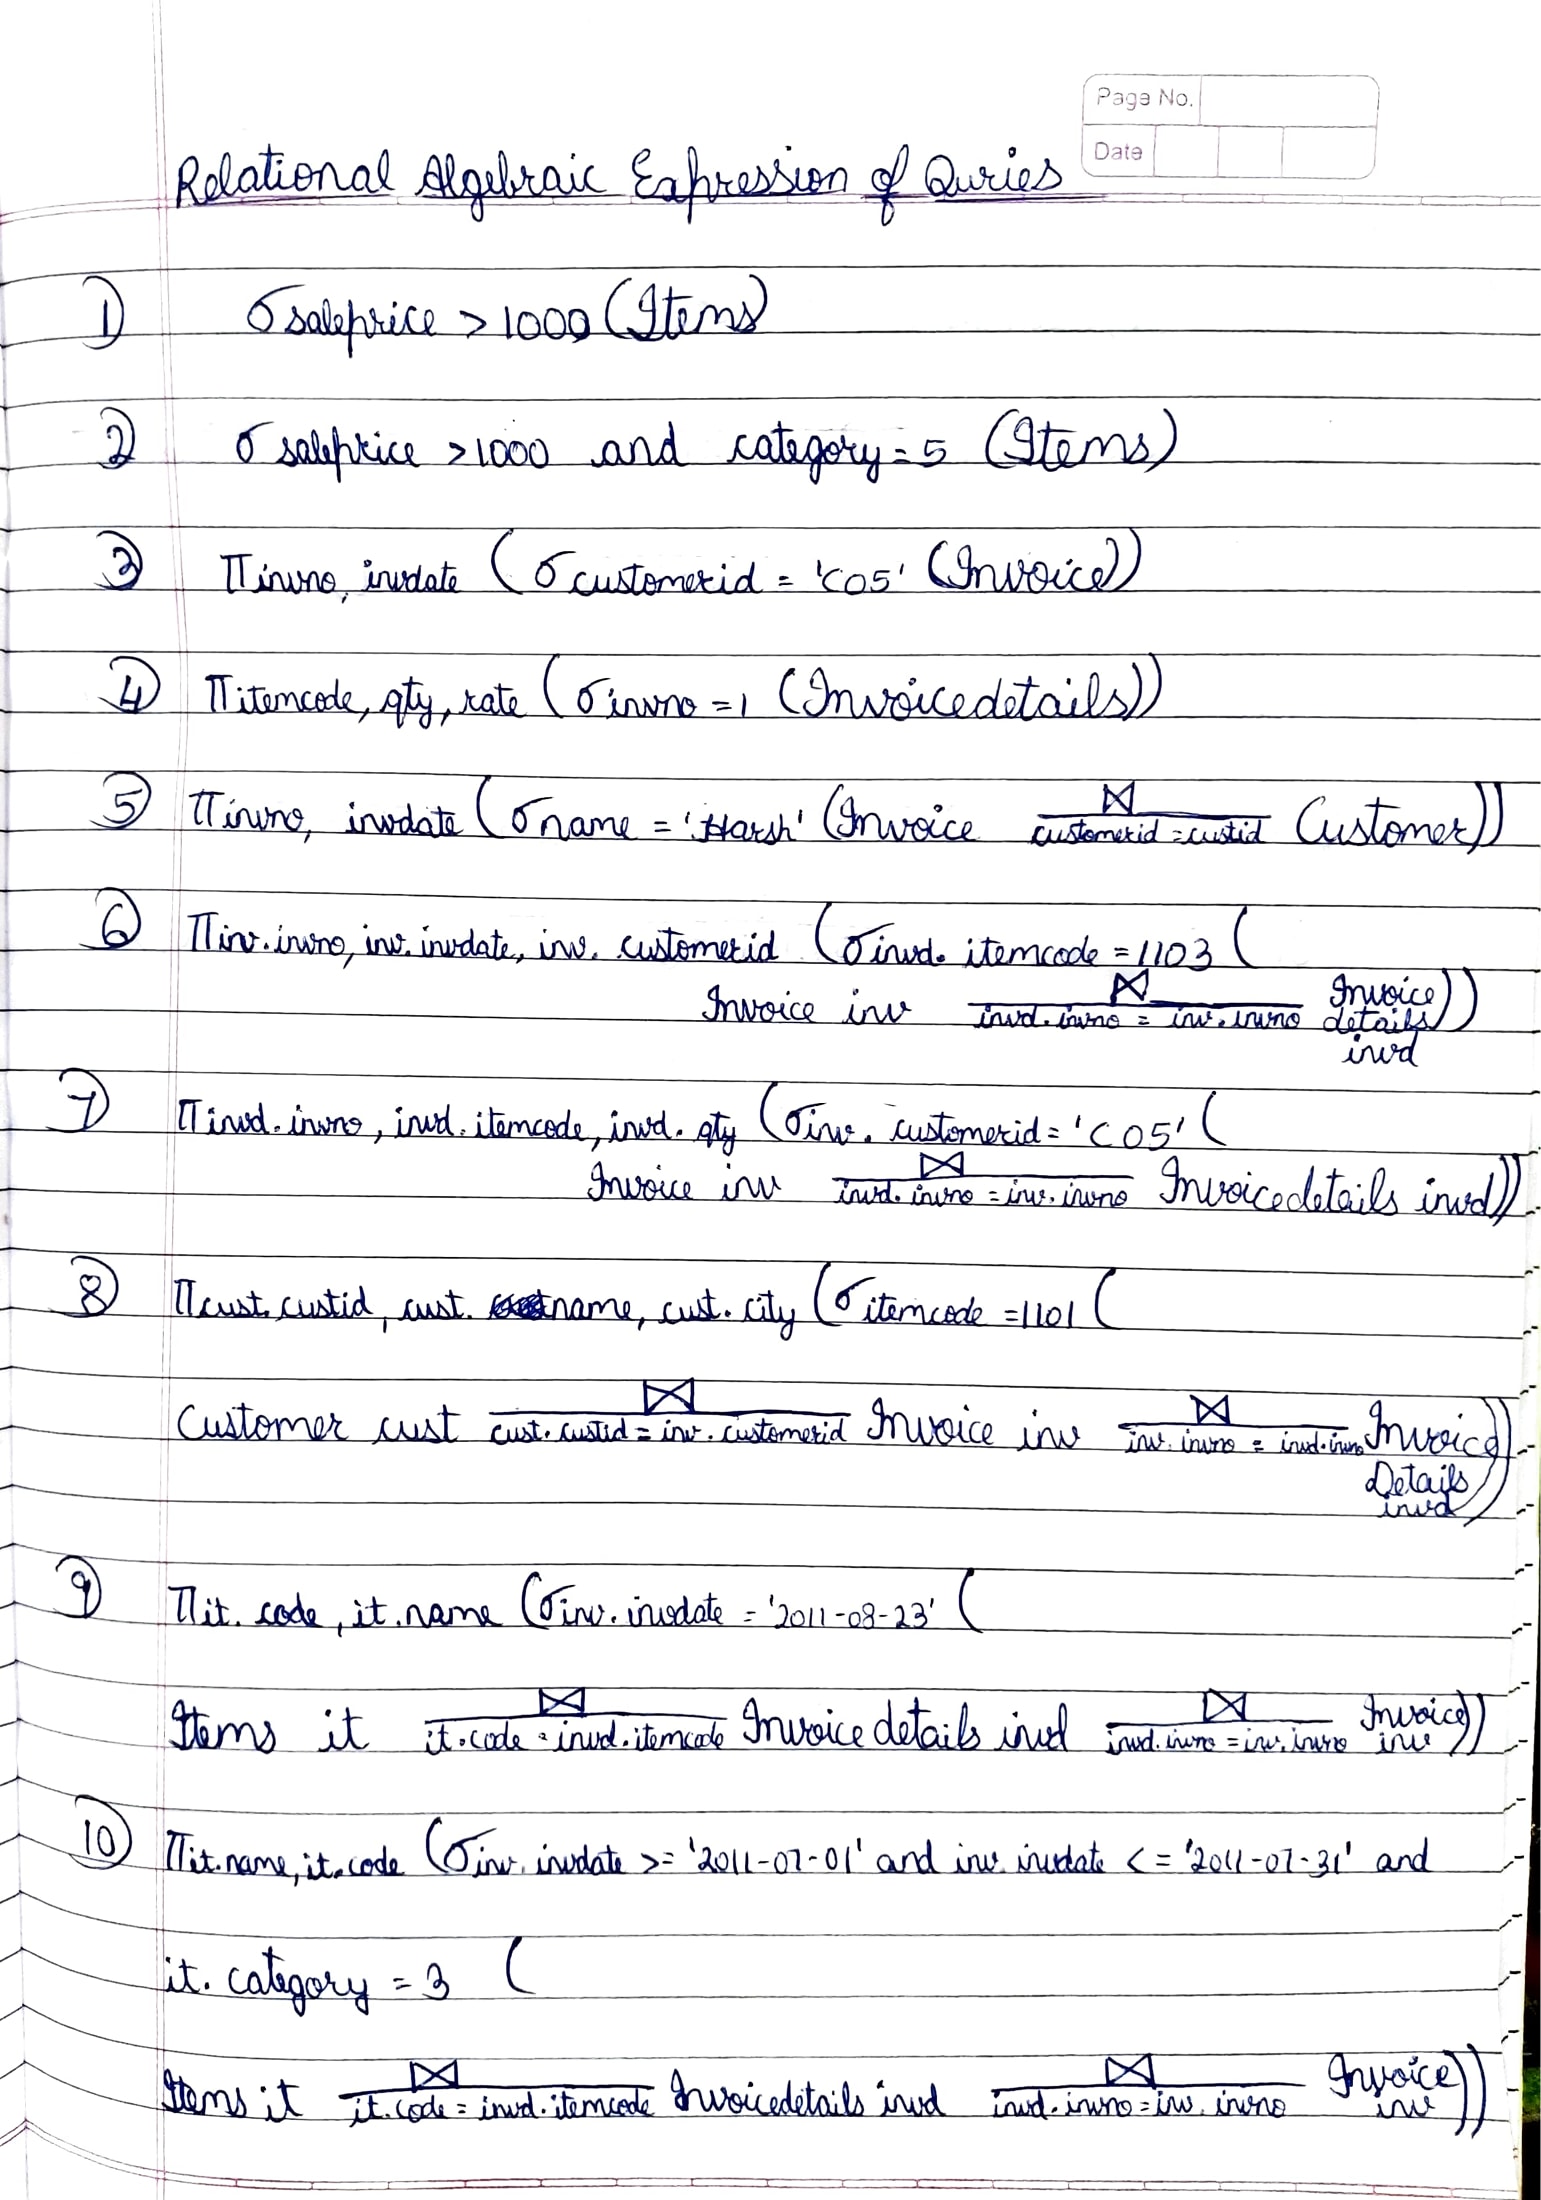 Page No.
Date
Relational Algebraic Expression of Quries
1) σ saleprice > 1000 (Items)
2) σ saleprice >1000 and category = 5 (Items)
3) Π invno, invdate (σ customerid = 'C05' (Invoice))
4) Π itemcode, qty, rate (σ invno = 1 (Invoicedetails))
5) Π invno, invdate (σ name = 'Harsh' (Invoice ⋈ customerid = custid Customer))
6) Π inv.invno, inv.invdate, inv.customerid (σ invd.itemcode = 1103 (
Invoice inv ⋈ invd.invno = inv.invno Invoice details invd))
7) Π invd.invno, invd.itemcode, invd.qty (σ inv.customerid = 'C05' (
Invoice inv ⋈ invd.invno = inv.invno Invoicedetails invd))
8) Π cust.custid, cust.name, cust.city (σ itemcode = 1101 (
Customer cust ⋈ cust.custid = inv.customerid Invoice inv ⋈ inv.invno = invd.invno Invoice Details invd))
9) Π it.code, it.name (σ inv.invdate = '2011-08-23' (
Items it ⋈ it.code = invd.itemcode Invoicedetails invd ⋈ invd.invno = inv.invno Invoice inv))
10) Π it.name, it.code (σ inv.invdate >= '2011-07-01' and inv.invdate <= '2011-07-31' and
it.category = 3 (
Items it ⋈ it.code = invd.itemcode Invoicedetails invd ⋈ invd.invno = inv.invno Invoice inv))